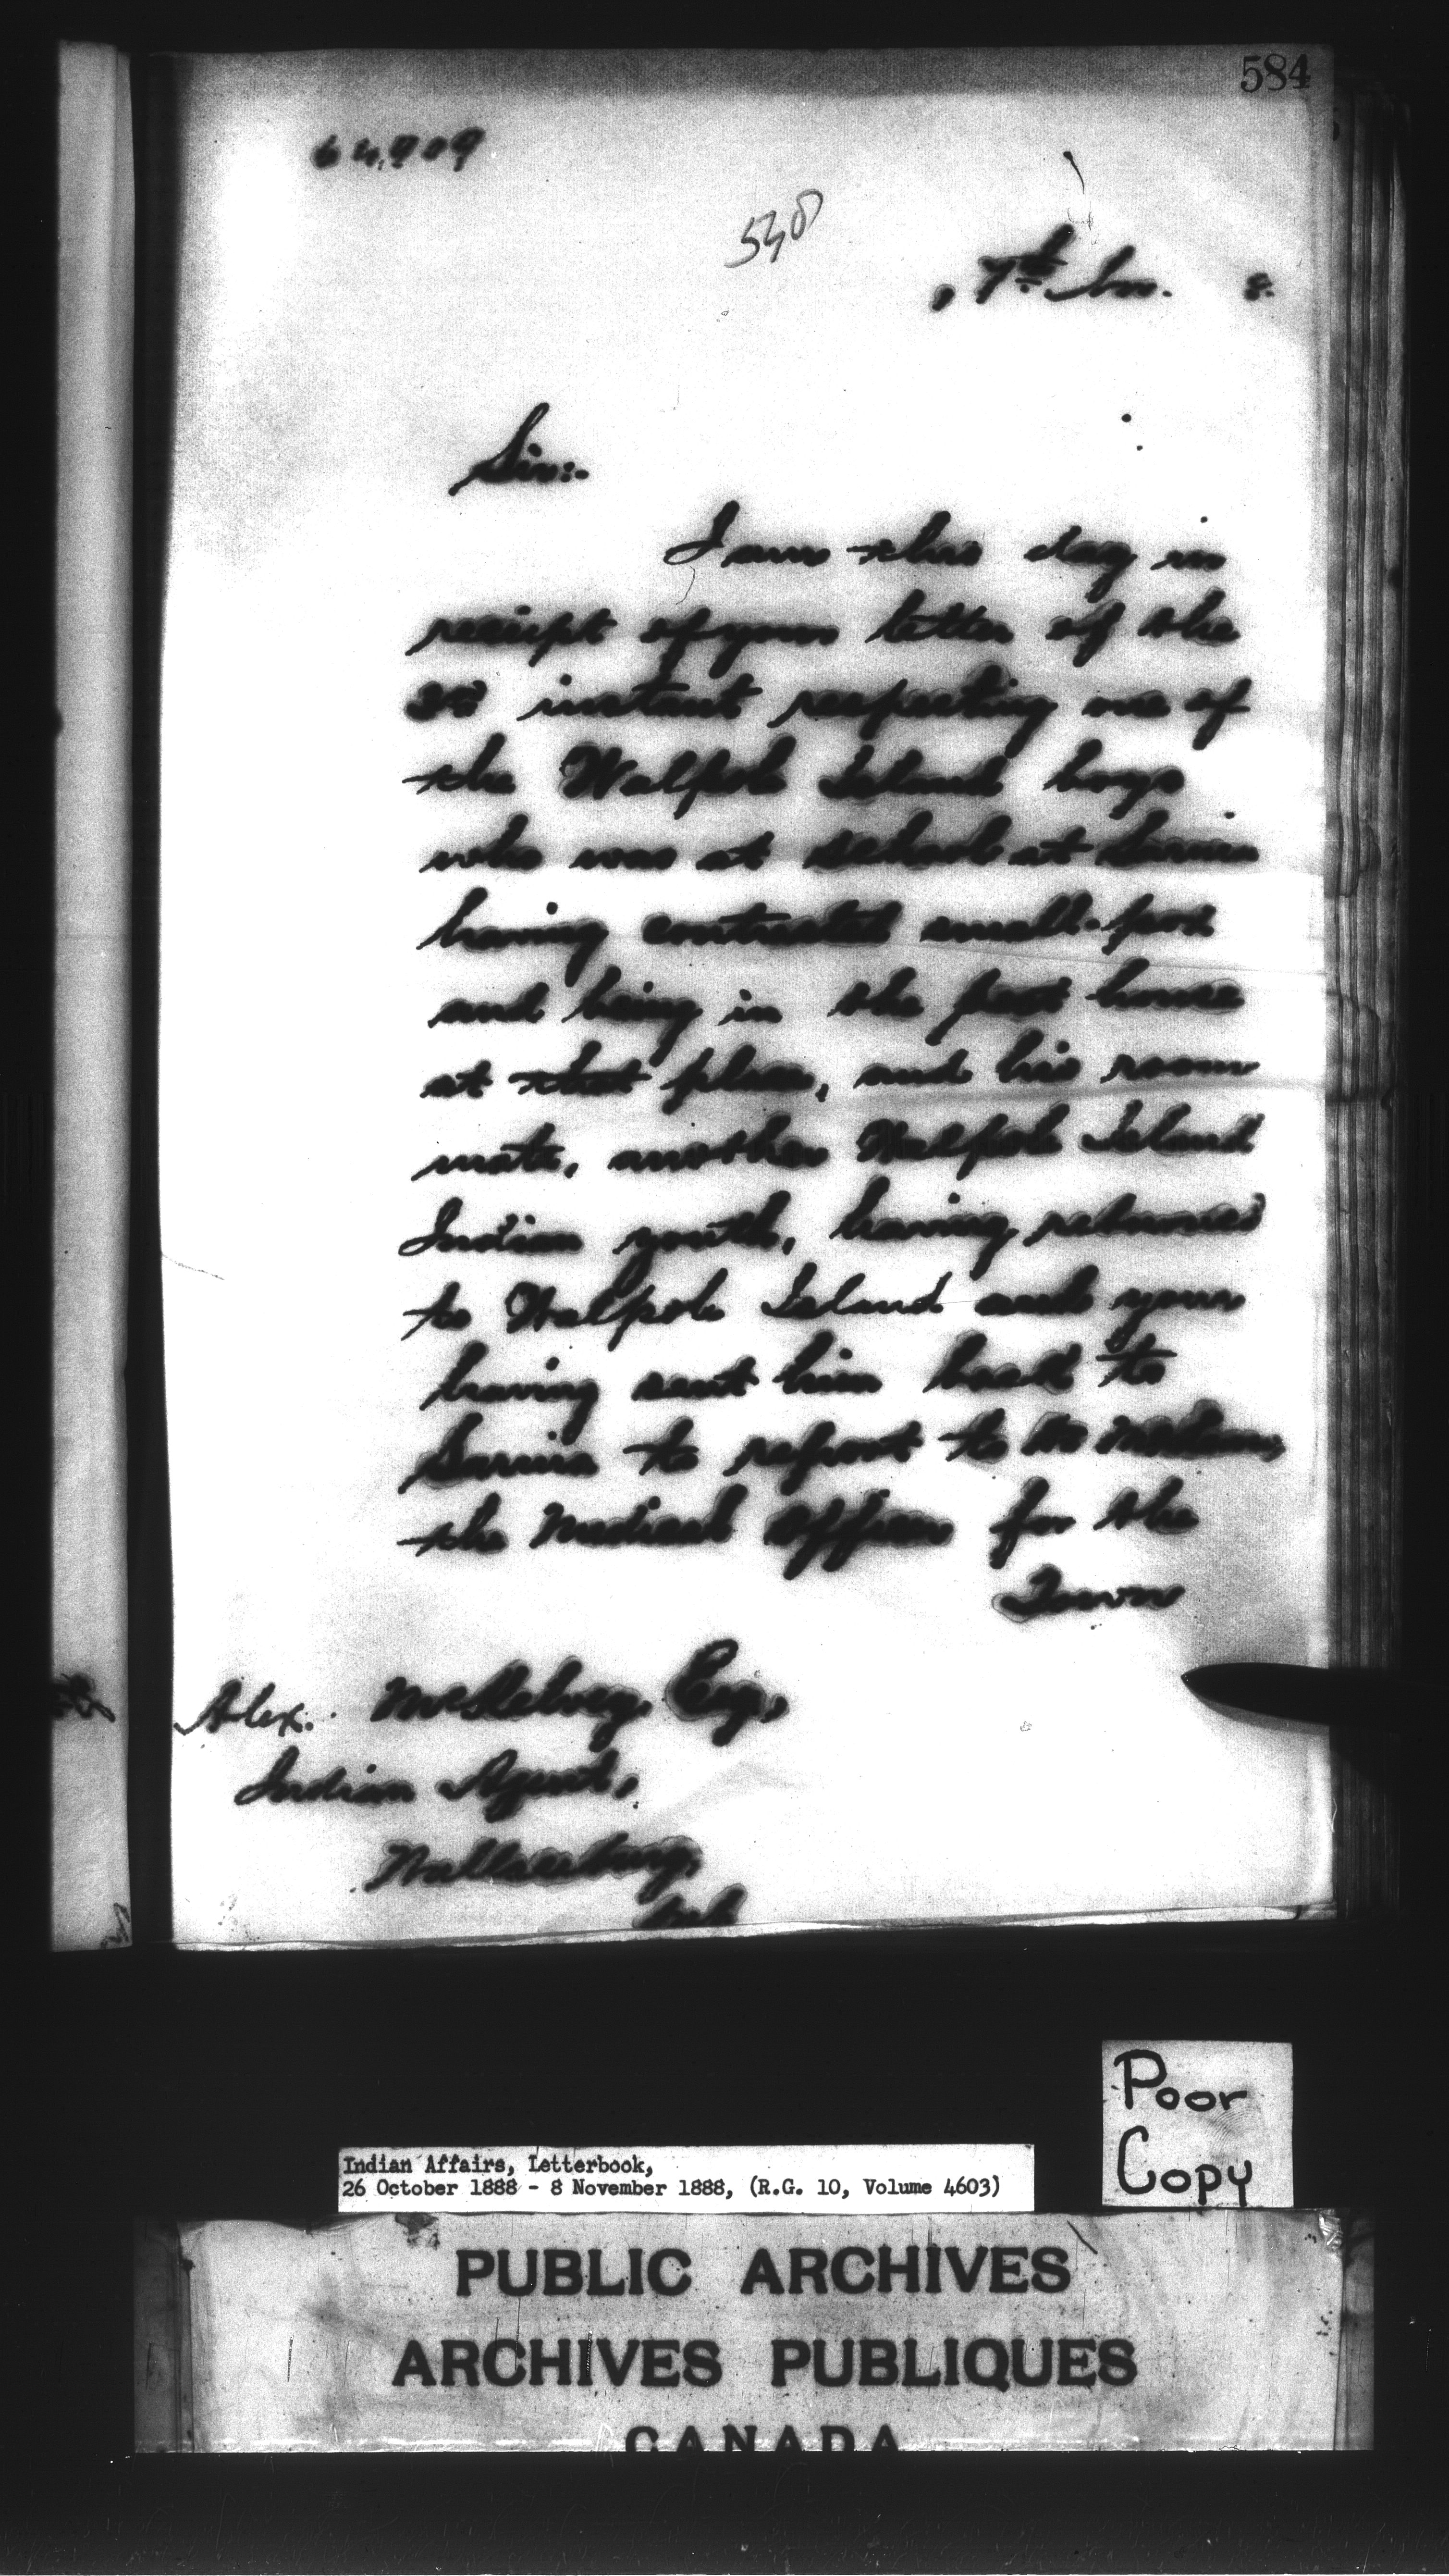 584
538
7th Nov. 8.
Sir:-
I am this day in
receipt of your letter of the
instant respecting one of
the Walpole Island boys
who was at school at Sarnia
having contracted small-pox
and being in the pest house
at that place, and his room
mate, another Walpole Island
Indian youth, having returned
to Walpole Island and your
having sent him back to
Sarnia to report to
the Medical Officer for the
Town
Alex. McKelvey, Esq.,
Indian Agent,
Wallaceburg,
Ont.
Poor
Copy
Indian Affairs, Letterbook,
26 October 1888 - 8 November 1888, (R.G. 10, Volume 4603)
PUBLIC ARCHIVES
ARCHIVES PUBLIQUES
CANADA